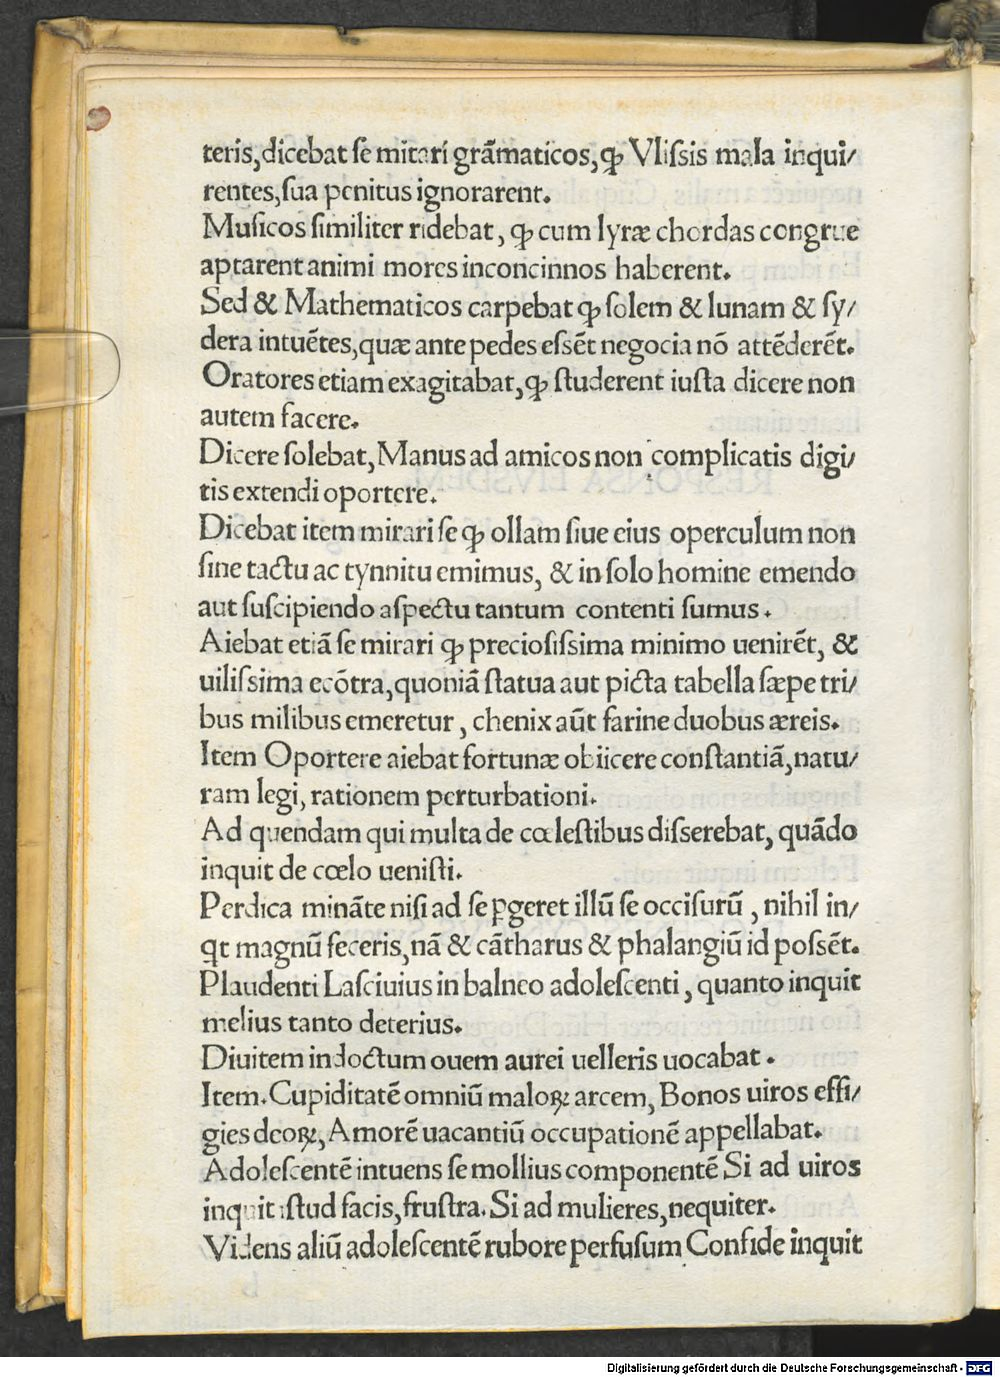 teris,dicebat se mirari grãmaticos,ꝙ Vlissis mala inqui/
rentes,sua penitus ignorarent.
Musicos similiter ridebat, ꝙ cum lyræ chordas congrue
aptarent animi mores inconcinnos haberent.
Sed & Mathematicos carpebat ꝙ solem & lunam & sy/
dera intuẽtes,quæ ante pedes essẽt negocia nõ attẽderẽt.
Oratores etiam exagitabat,ꝙ studerent iusta dicere non
autem facere.
Dicere solebat,Manus ad amicos non complicatis digi/
tis extendi oportere.
Dicebat item mirari se ꝙ ollam siue eius operculum non
sine tactu ac tynnitu emimus, & in solo homine emendo
aut suscipiendo aspectu tantum contenti sumus.
Aiebat etiã se mirari ꝙ preciosissima minimo uenirẽt, &
uilissima ecõtra,quoniã statua aut picta tabella sæpe tri/
bus milibus emeretur, chenix aũt farine duobus æreis.
Item Oportere aiebat fortunæ obiicere constantiã,natu/
ram legi, rationem perturbationi.
Ad quendam qui multa de cœlestibus disserebat, quãdo
inquit de cœlo uenisti.
Perdica minãte nisi ad se ꝑgeret illũ se occisurũ, nihil in/
qt magnũ feceris,nã & cãtharus & phalangiũ id possẽt.
Plaudenti Lasciuius in balneo adolescenti, quanto inquit
melius tanto deterius.
Diuitem indoctum ouem aurei uelleris uocabat.
Item.Cupiditatẽ omniũ maloꝝ arcem, Bonos uiros effi/
gies deoꝝ, Amorẽ uacantiũ occupationẽ appellabat.
Adolescentẽ intuens se mollius componentẽ Si ad uiros
inquit istud facis,frustra.Si ad mulieres,nequiter.
Videns aliũ adolescentẽ rubore perfusum Confide inquit
Digitalisierung gefördert durch die Deutsche Forschungsgemeinschaft - DFG